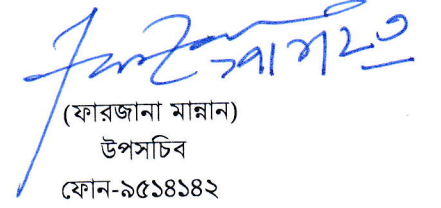 (ফারজানা মান্নান)
উপসচিব
ফোন-৯৫১৪১৪২